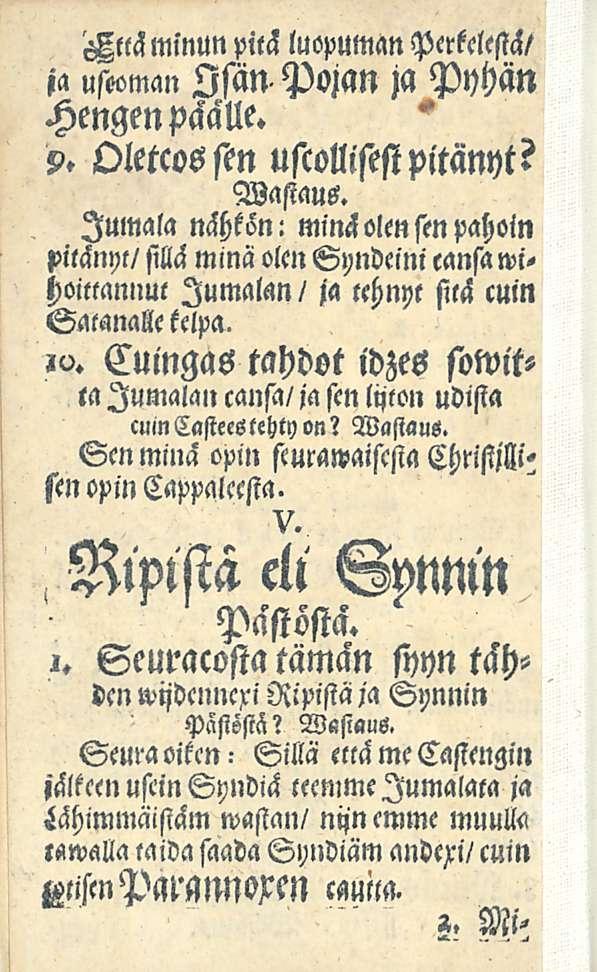 Että minun pitä luopuman Perkelestä/
ja uscoman Isän Pojan ja Pyhän
Hengen päälle.
9. Oletcos sen uscollisest pitänyt?
Wastaus.
Jumala nähkön: minä olen sen pahoin
pitänyt/ sillä minä olen Syndeini cansa wi-
hoittannut Jumalan / ja tehnyt sitä cuin
Satanalle kelpa.
10. Cuingas tahdot idzes sowit-
ta Jumalan cansa/ ja sen lijton udista
cuin Castees tehty on? Wastaus.
Sen minä opin seurawaisesta Christilli-
sen opin Cappaleesta.
V.
Ripistä eli Synnin
Pästöstä.
1. Seuracosta tämän syyn täh-
den wijdennexi Ripistä ja Synnin
Pästöstä? Wastaus.
Seura oiken: Sillä että me Castengin
jälkeen usein Syndiä teemme Jumalata ja
Lähimmäistäm wastan/ nijn emme muulla
tawalla taida saada Syndiäm andexi/ cuin
totisen Parannoxen cautta.
2. Mi-